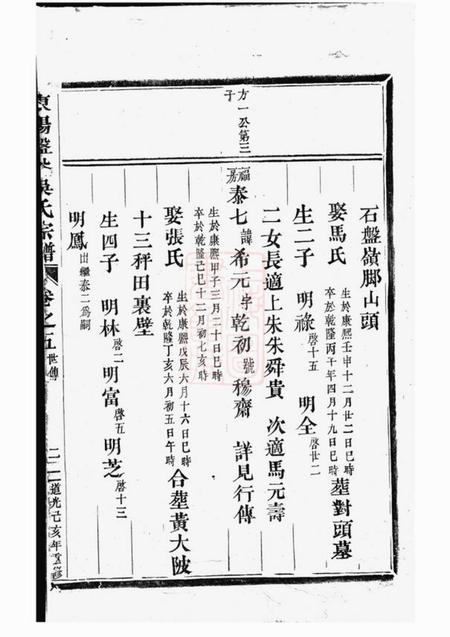 方一公第三
子
石盤嶺腳山頭
娶馬氏 生於康熙壬申十二月廿二日巳時 卒於乾隆丙午年四月十九日巳時 塟對頭墓
生二子 明祿啓十五 明全啓廿二
二女長適上朱朱舜貴 次適馬元壽
泰七諱希元字乾初號穆齋 詳見行傳
生於康熙甲子三月二十日巳時
卒於乾隆己巳十二月初七亥時
娶張氏 生於康熙戊辰六月十六日巳時 卒於乾隆丁亥六月初五日午時 合塟黃大陂
十三秤田裏壁
生四子 明林啓二 明富啓五 明芝啓十三
明鳳出繼泰二爲嗣
吳氏宗譜 卷之五 世傳 道光己亥年重修